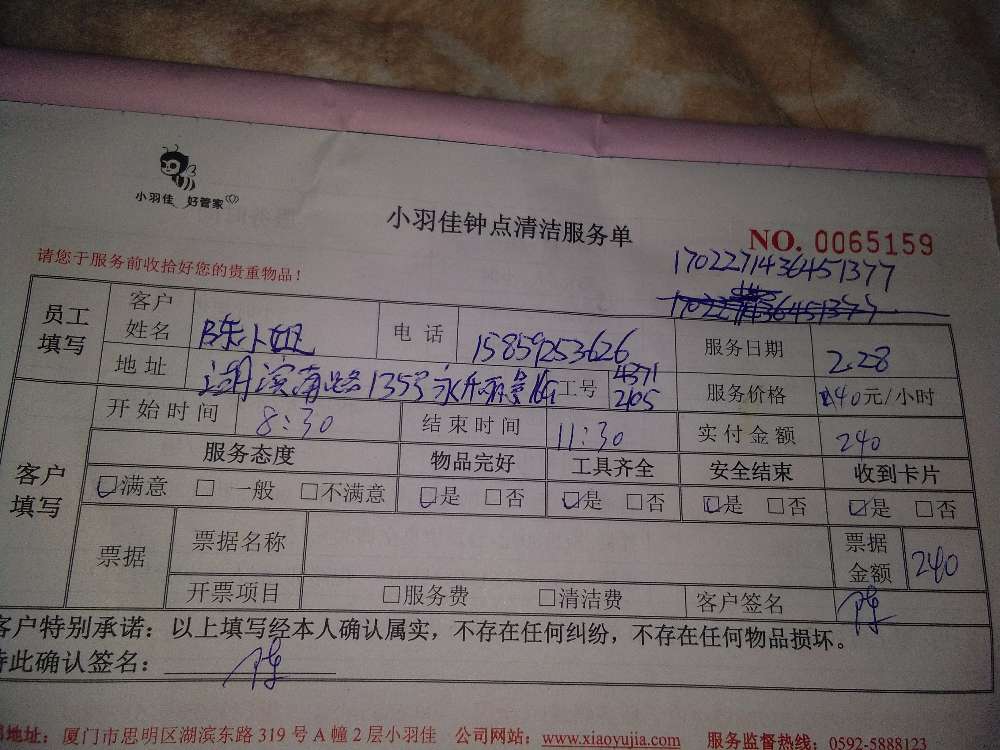 小羽佳 好管家
小羽佳钟点清洁服务单
NO. 0065159
17022714364511377
请您于服务前收拾好您的贵重物品！
员工填写 客户姓名 陈小姐 电话 15859253626 服务日期 2.28
地址 湖滨南路135号 工号 4371 2105 服务价格 40元/小时
客户填写 开始时间 8:30 结束时间 11:30 实付金额 240
服务态度 物品完好 工具齐全 安全结束 收到卡片
☑满意 □一般 □不满意 ☑是 □否 ☑是 □否 ☑是 □否 ☑是 □否
票据 票据名称 票据金额 240
开票项目 □服务费 □清洁费 客户签名 陈
客户特别承诺：以上填写经本人确认属实，不存在任何纠纷，不存在任何物品损坏。
特此确认签名：陈
地址：厦门市思明区湖滨东路319号A幢2层小羽佳 公司网站：www.xiaoyujia.com 服务监督热线：0592-5888123